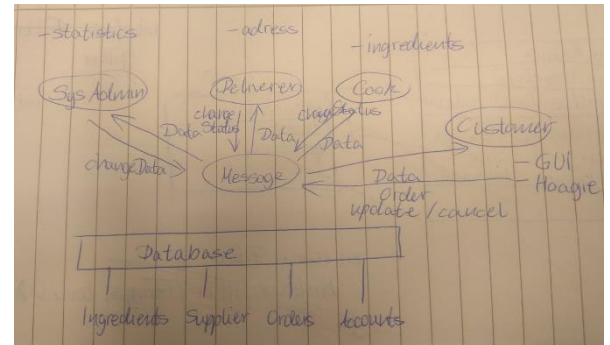 -statistics
-adress
-ingredients
Sys Admin
Deliverer
Cook
Customer
change
Status
Data
Data
change Status
Data
changeData
Message
-GUI
Hoagie
Data
Order
update / cancel
Database
Ingredients Supplier Orders Accounts